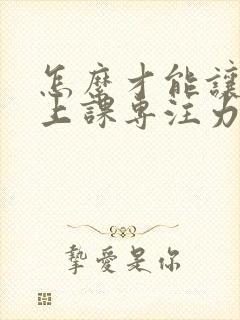 怎麼才能讓
上課專注力
摯愛是你